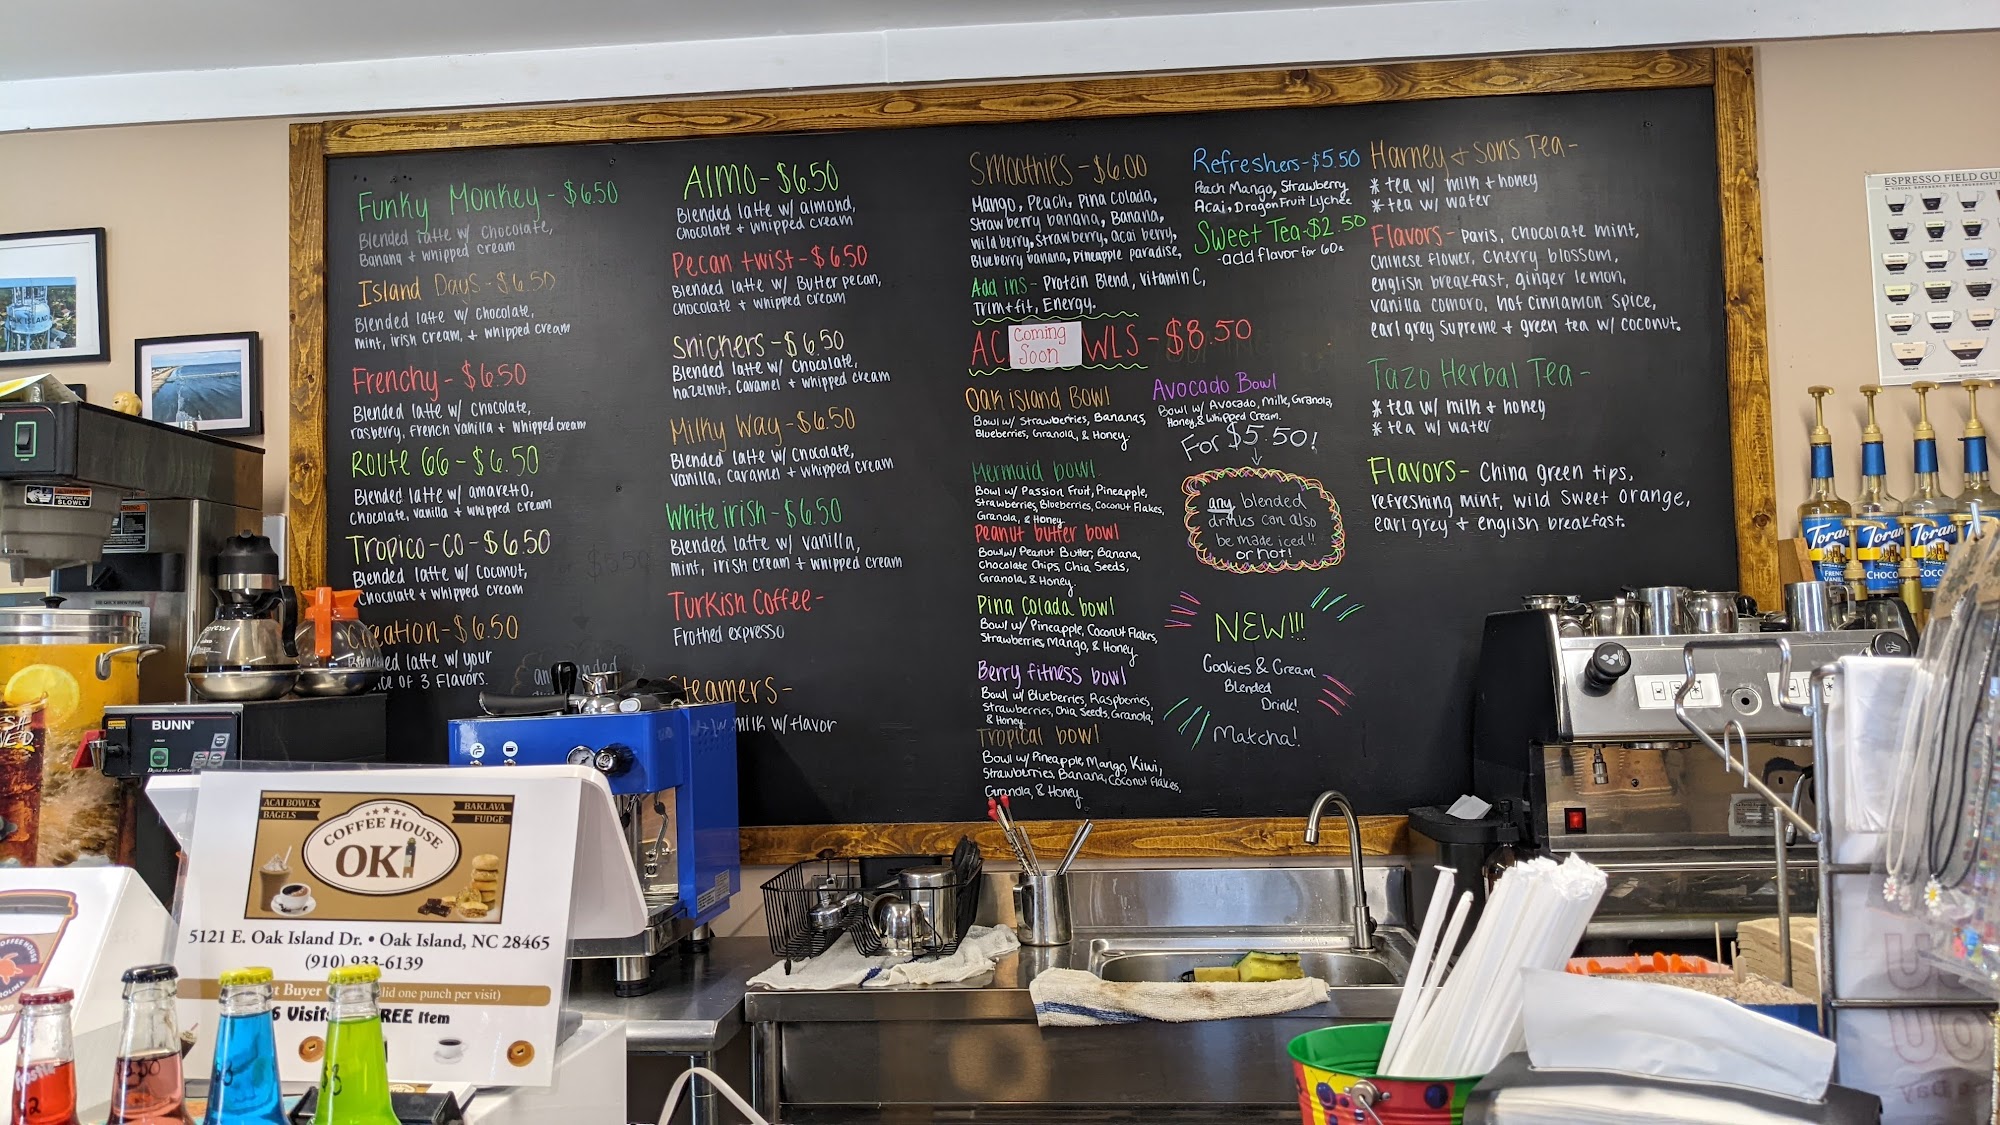 Funky Monkey - $6.50
Blended latte w/ Chocolate,
Banana + whipped cream
Island Days - $6.50
Blended latte w/ chocolate,
mint, irish cream, + whipped cream
Frenchy - $6.50
Blended latte w/ Chocolate,
rasberry, French vanilla + whipped cream
Route 66 - $6.50
Blended latte w/ amaretto,
Chocolate, vanilla + whipped cream
Tropico-co - $6.50
Blended latte w/ Coconut,
Chocolate + whipped cream
Creation - $6.50
Blended latte w/ your
of 3 Flavors.
Almo - $6.50
Blended latte w/ almond,
Chocolate + whipped cream
Pecan twist - $6.50
Blended latte w/ Butter pecan,
Chocolate + whipped cream
Snickers - $6.50
Blended latte w/ Chocolate,
hazelnut, Caramel + whipped cream
Milky Way - $6.50
Blended latte w/ Chocolate,
vanilla, Caramel + whipped cream
White irish - $6.50
Blended latte w/ vanilla,
mint, irish cream + whipped cream
Turkish Coffee -
Frothed expresso
Steamers -
milk w/ flavor
Smoothies - $6.00
Mango, Peach, Pina Colada,
Strawberry banana, Banana,
wild berry, Strawberry, acai berry,
Blueberry banana, Pineapple paradise,
Add ins - Protein Blend, Vitamin C,
Trim + fit, Energy.
AC
Coming
Soon
WLS - $8.50
Oak island Bowl
Bowl w/ Strawberries, Bananas,
Blueberries, Granola, & Honey.
Mermaid bowl
Bowl w/ Passion Fruit, Pineapple,
Strawberries, Blueberries, Coconut Flakes,
Granola, & Honey.
Peanut butter bowl
Bowl w/ Peanut Butter, Banana,
Chocolate Chips, Chia Seeds,
Granola, & Honey.
Pina Colada bowl
Bowl w/ Pineapple, Coconut Flakes,
Strawberries, Mango, & Honey
Berry fitness bowl
Bowl w/ Blueberries, Raspberries,
Strawberries, Chia Seeds, Granola,
& Honey.
Tropical bowl
Bowl w/ Pineapple, Mango, Kiwi,
Strawberries, Banana, Coconut Flakes,
Granola, & Honey.
Refreshers - $5.50
Peach Mango, Strawberry
Acai, Dragon Fruit Lychee
Sweet Tea - $2.50
- add flavor for 60¢
Avocado Bowl
Bowl w/ Avocado, Milk, Granola,
Honey, & Whipped Cream.
For $5.50!
any blended
drinks can also
be made iced!!
or hot!
NEW!!!
Cookies & Cream
Blended
Drink!
Matcha!
Harney + Sons Tea -
* tea w/ milk + honey
* tea w/ water
Flavors - Paris, chocolate mint,
Chinese flower, cherry blossom,
english breakfast, ginger lemon,
vanilla comoro, hot cinnamon spice,
earl grey Supreme + green tea w/ coconut.
Tazo Herbal Tea -
* tea w/ milk + honey
* tea w/ water
Flavors - China green tips,
refreshing mint, wild sweet orange,
earl grey + english breakfast.
ESPRESSO FIELD GU
Torani
Torani
Torani
BUNN
SLOWLY
ACAI BOWLS
BAGELS
BAKLAVA
FUDGE
COFFEE HOUSE
OKI
5121 E. Oak Island Dr. • Oak Island, NC 28465
(910) 933-6139
Buyer
lid one punch per visit)
6 Visits
REE Item
$3